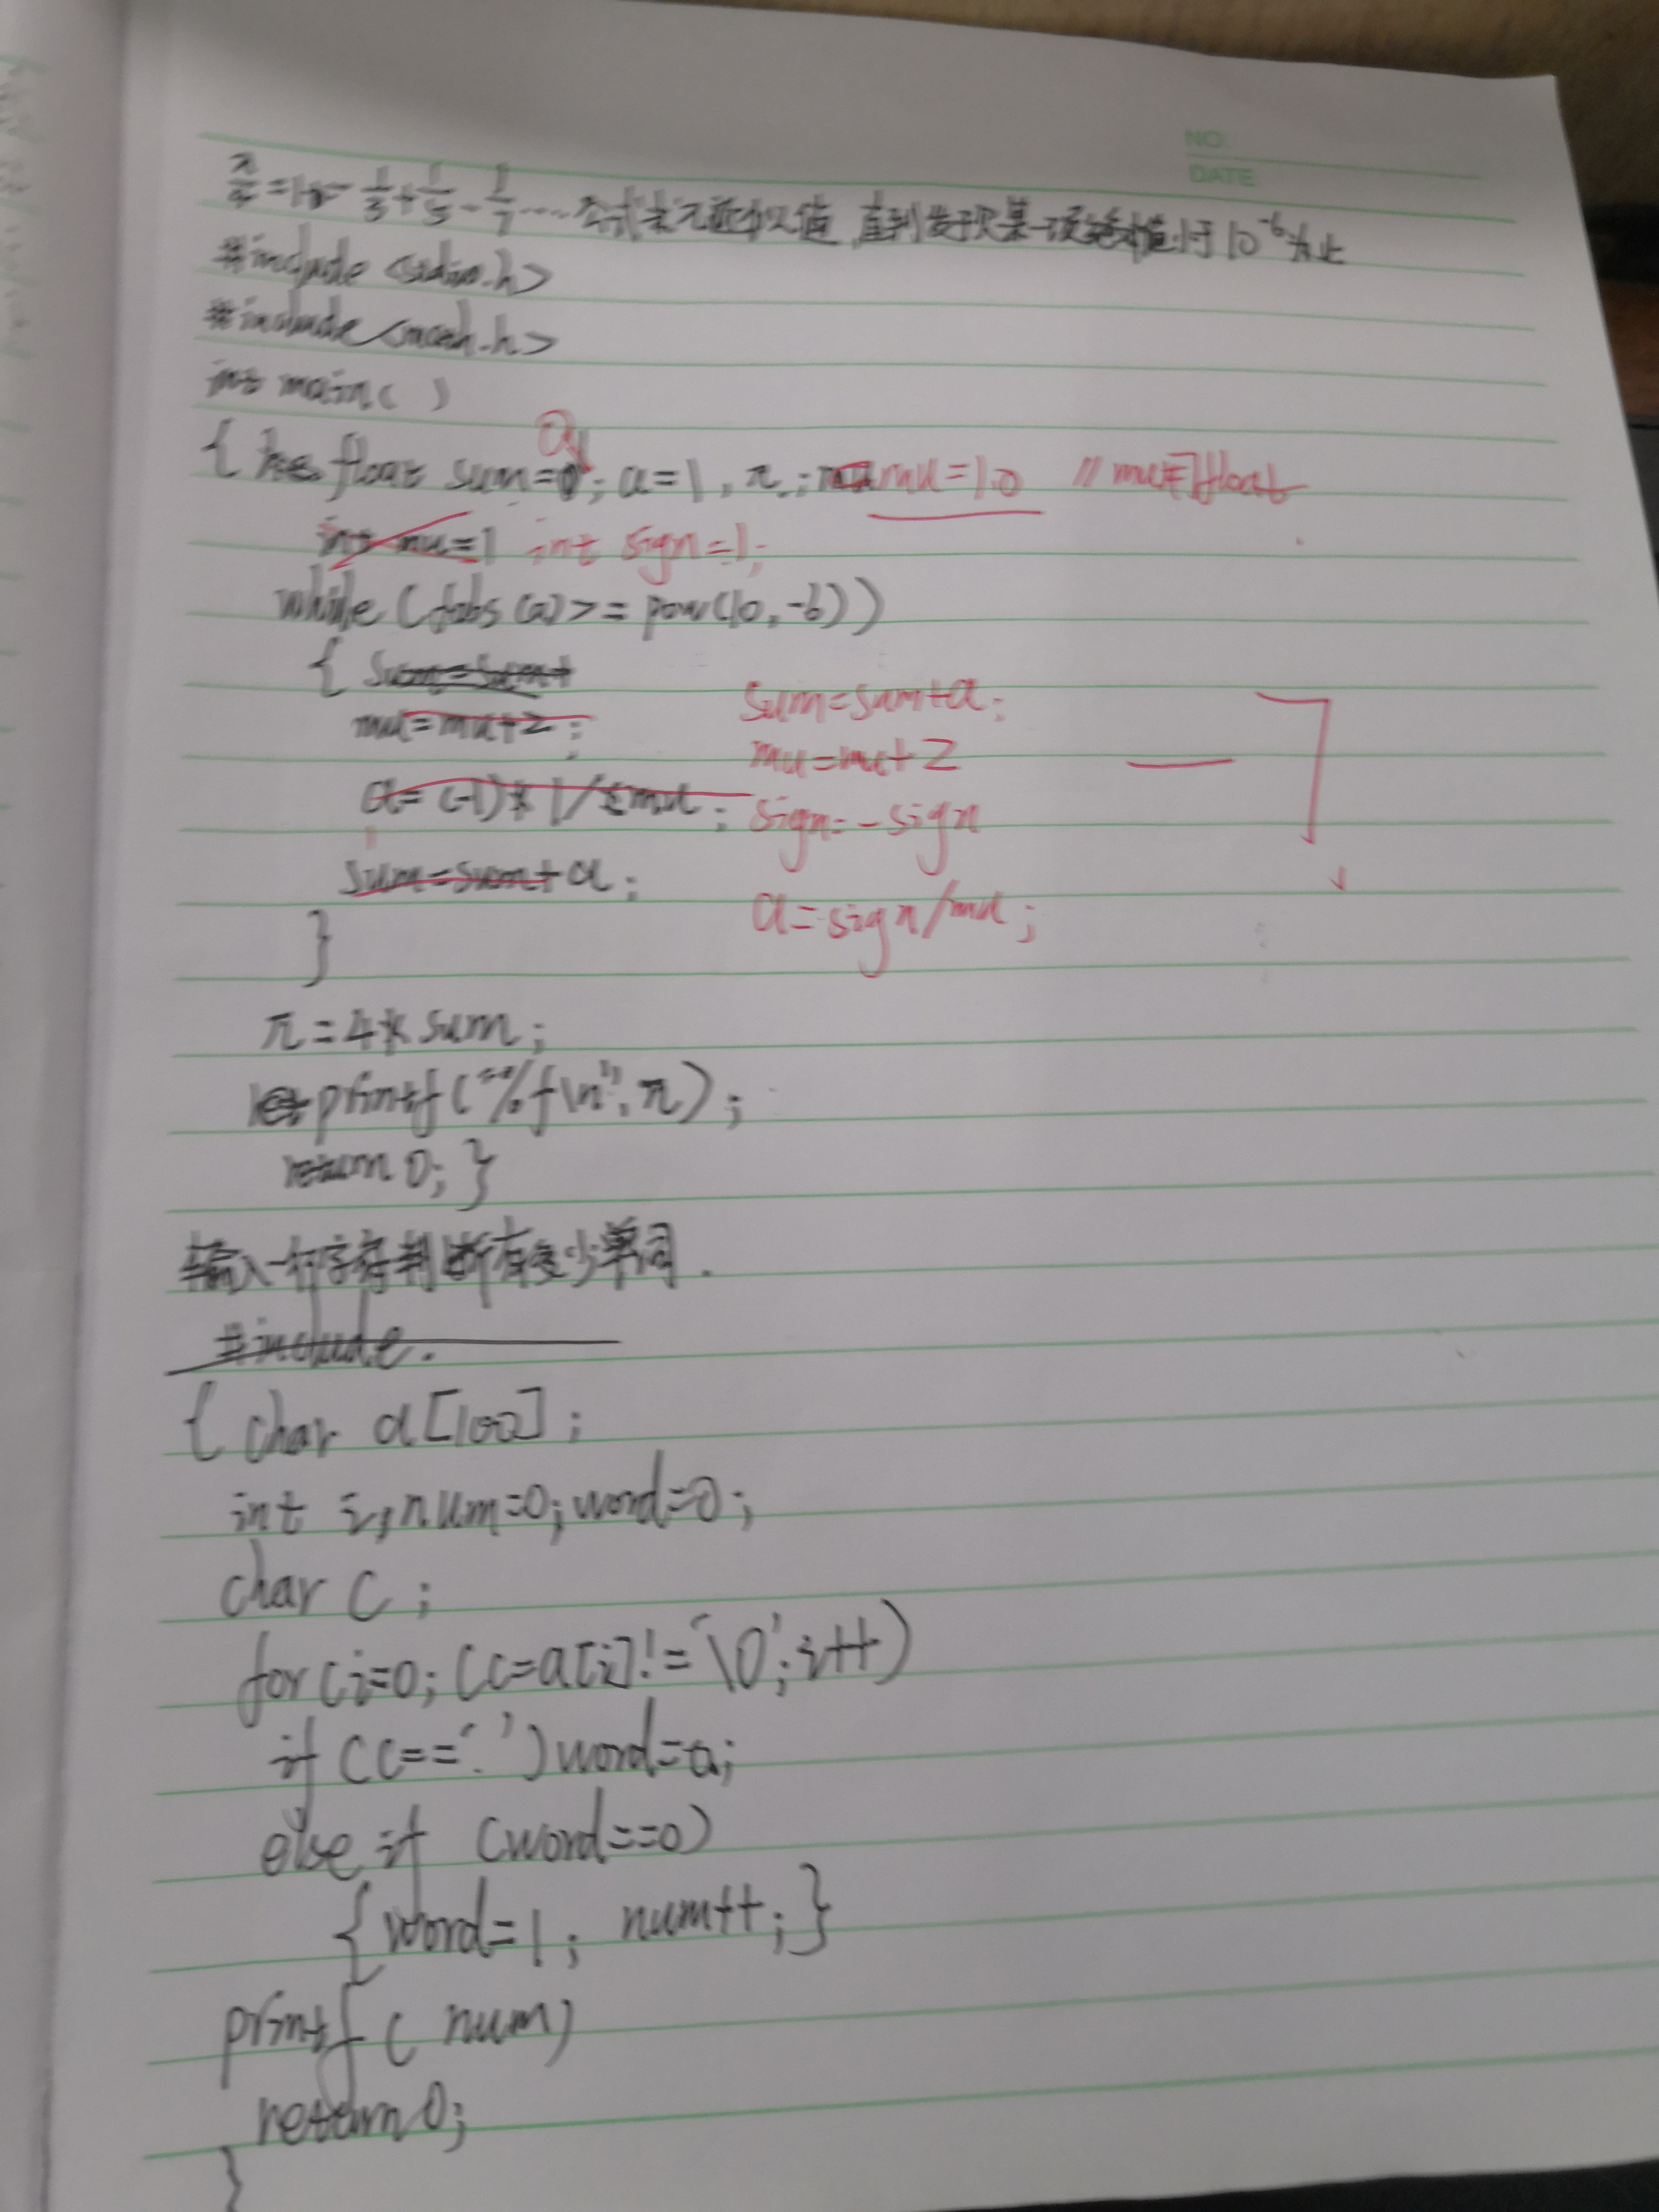 NO.
DATE
π/4=1-1/3+1/5-1/7……公式求π近似值,直到发现某一项绝对值小于10^-6为止
#include <stdio.h>
#include <math.h>
int main( )
{ float sum=0; a=1, π; mu=1.0 // mu float
int mu=1 int sign=1;
while (fabs (a)>= pow(10,-6))
{ sum=sum+
mu=mu+2; sum=sum+a;
mu=mu+2
a= (-1)* 1/ mu; sign=-sign
sum=sum+a; a=sign/mu;
}
π=4* sum;
printf("%f\n",π);
return 0; }
输入一行字符判断有多少单词.
#include.
{ char a[100];
int i,num=0;word=0;
char c;
for(i=0;(c=a[i]!='\0';i++)
if (c==' ')word=0;
else if (word==0)
{word=1; num++;}
printf( num)
return 0;
}